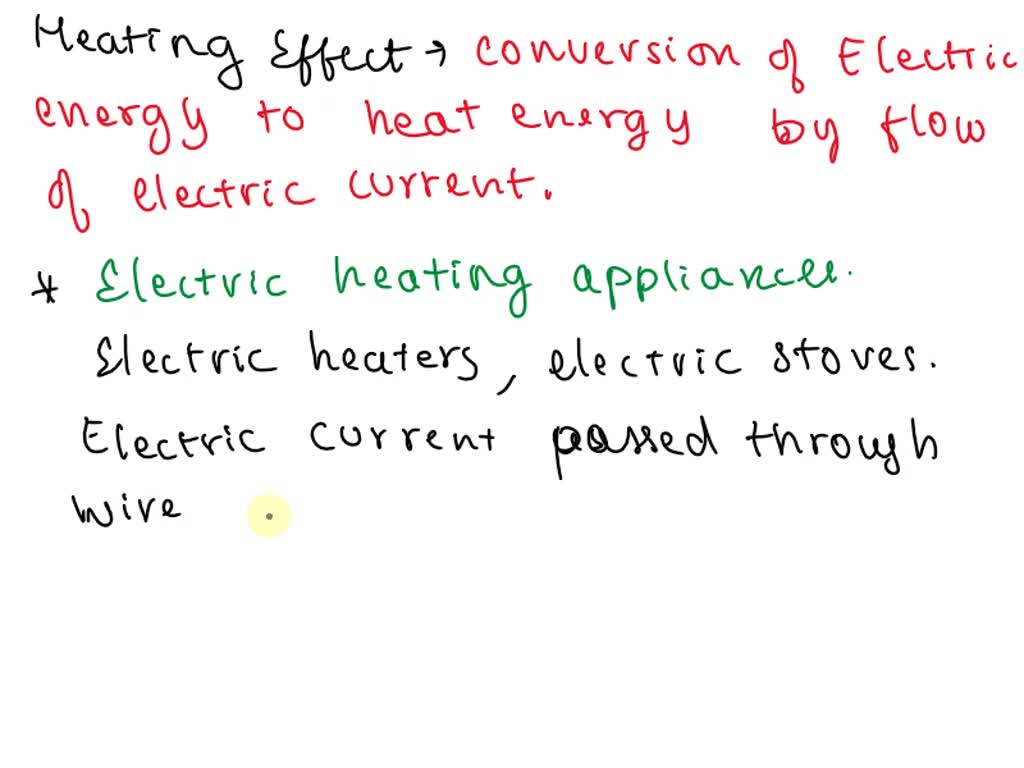 Heating Effect → conversion of Electric
energy to heat energy by flow
of electric current.
* Electric heating appliances.
Electric heaters, electric stoves.
Electric current passed through
wire